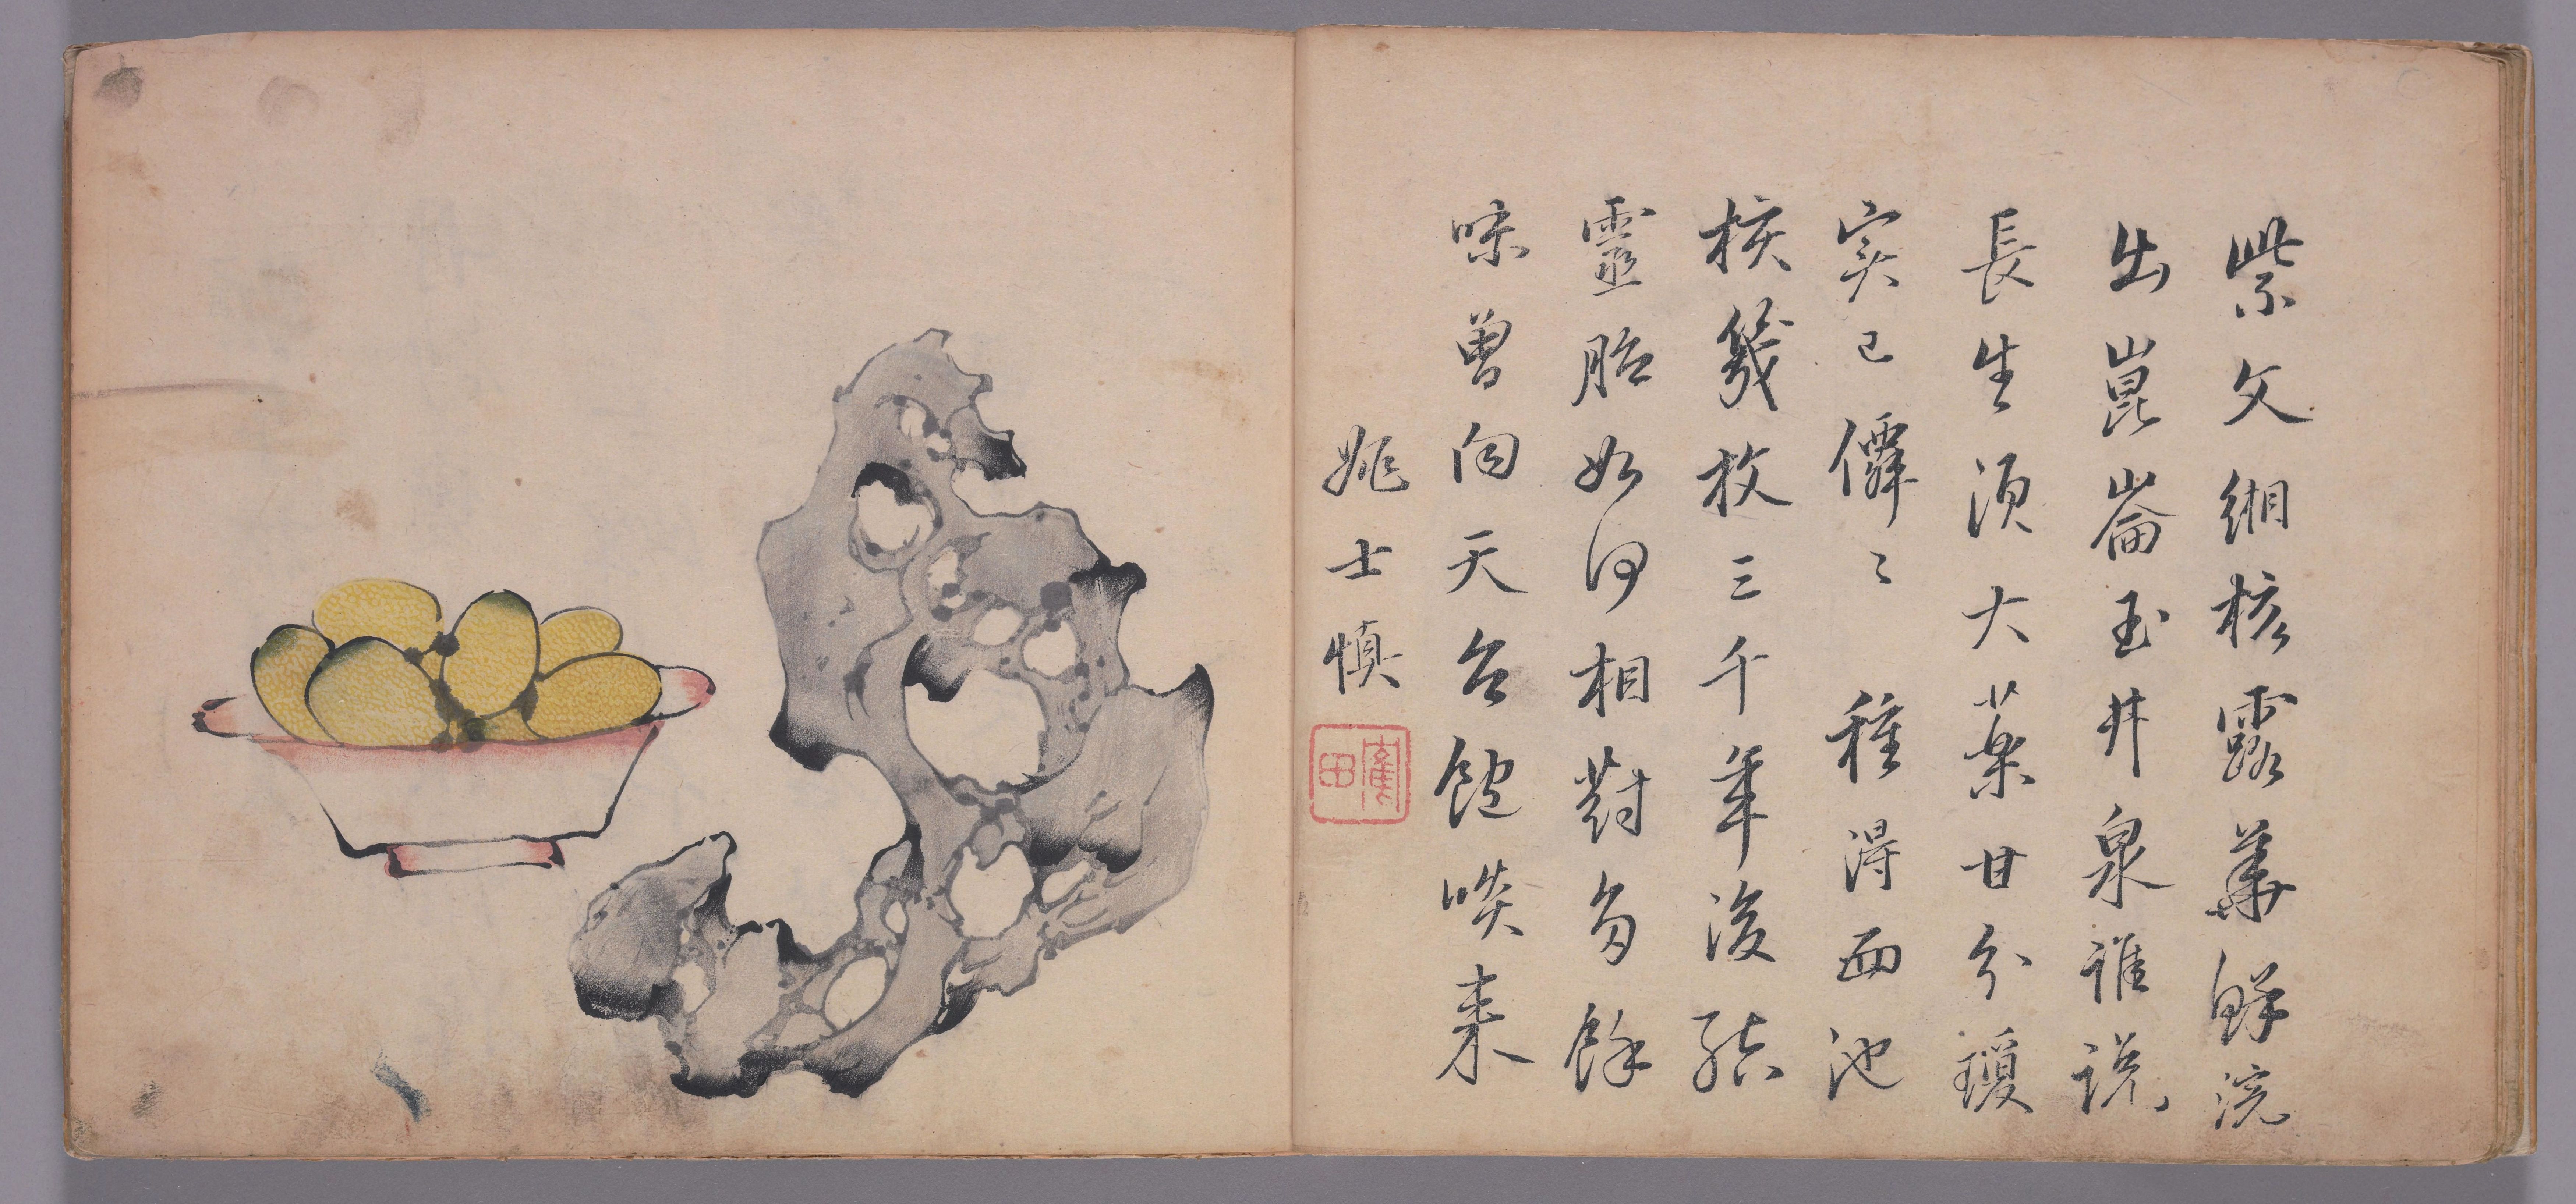 紫文緗核露華鮮浣
出崑崙玉井泉誰説
長生須大藥甘分瓊
實已僊〻 種得西池
核幾枚三千年後結
靈胎如何相對多餘
味曾向天台飽啖來
姚士慎